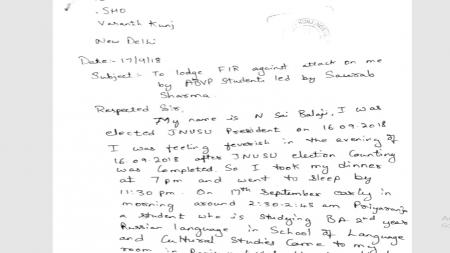 SHO
Varanth Kunj
New Delhi
Date:- 17/9/18
Subject:- To lodge FIR against attack on me
by ABVP Student led by Saurab
Sharma
Respected Sir,
My name is N Sai Balaji, I was
elected JNUSU President on 16.09.2018
I was feeling feverish in the evening of
16.09.2018 after JNUSU election Counting
was Completed. So I took my dinner
at 7 pm and went to sleep by
11:30 pm. On 17th September early in
morning around 2:30-2:45 am Priyaranjan
a student who is studying BA 2nd year
Russian language in School of Language
and Cultural Studies Came to my
room in